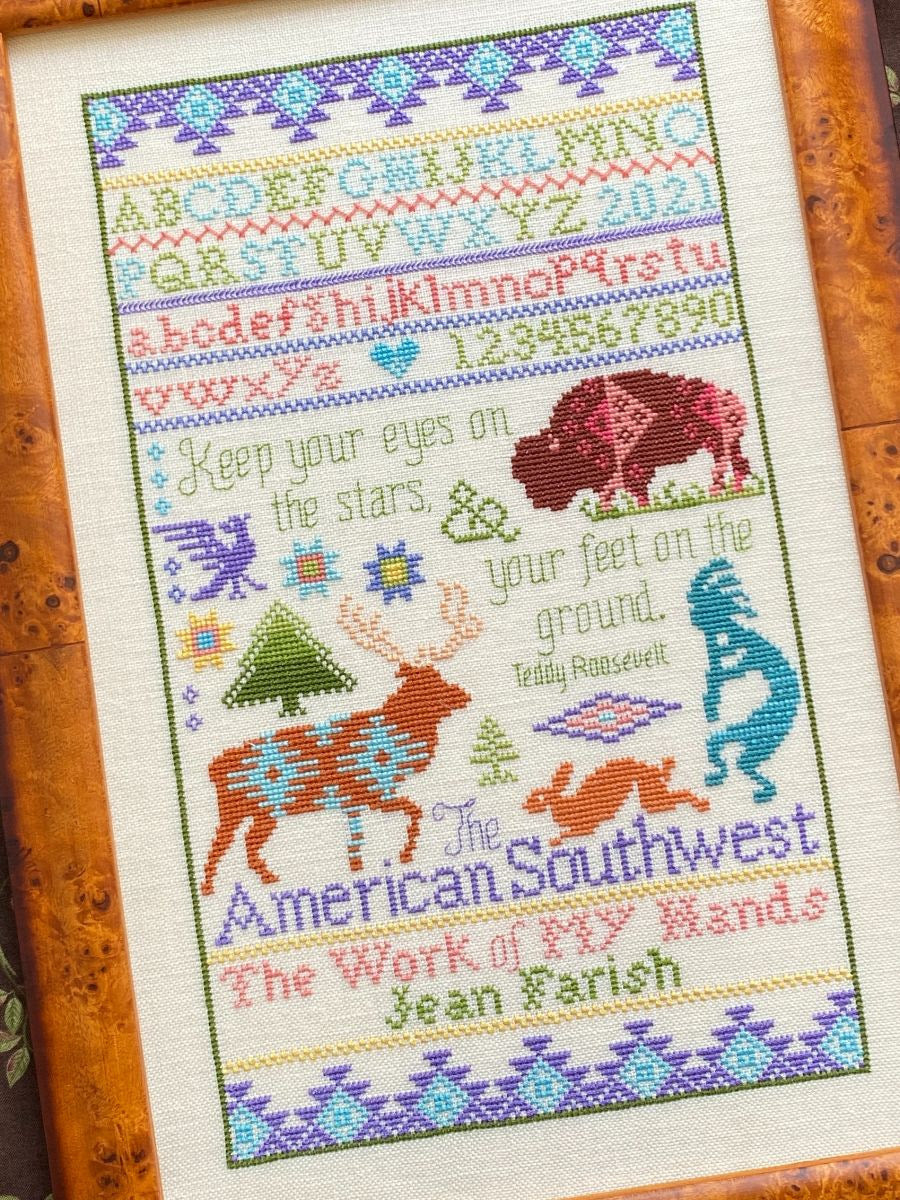 ABCDEFGHIJKLMNO
PQRSTUVWXYZ 2021
abcdefghijklmnopqrstu
vwxyz 1234567890
Keep your eyes on
the stars, &
your feet on the
ground.
Teddy Roosevelt
The
American Southwest
The Work of MY Hands
Jean Farish